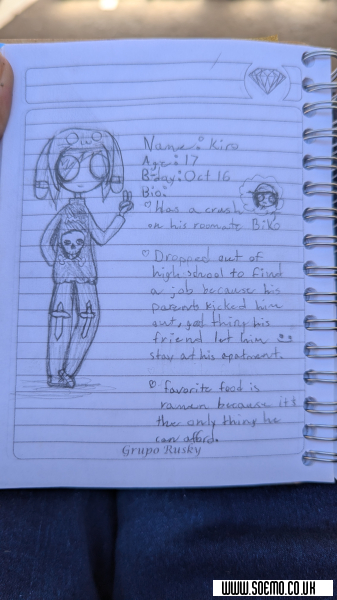 Name: Kiro
Age: 17
B-day: Oct 16
Bio:
Has a crush
on his roomate Biko
Dropped out of
high school to find
a job because his
parents kicked him
out, god thing his
friend let him
stay at his apotment.
favorite food is
ramen because it's
the only thing he
can afford.
Grupo Rusky
WWW.SOEMO.CO.UK